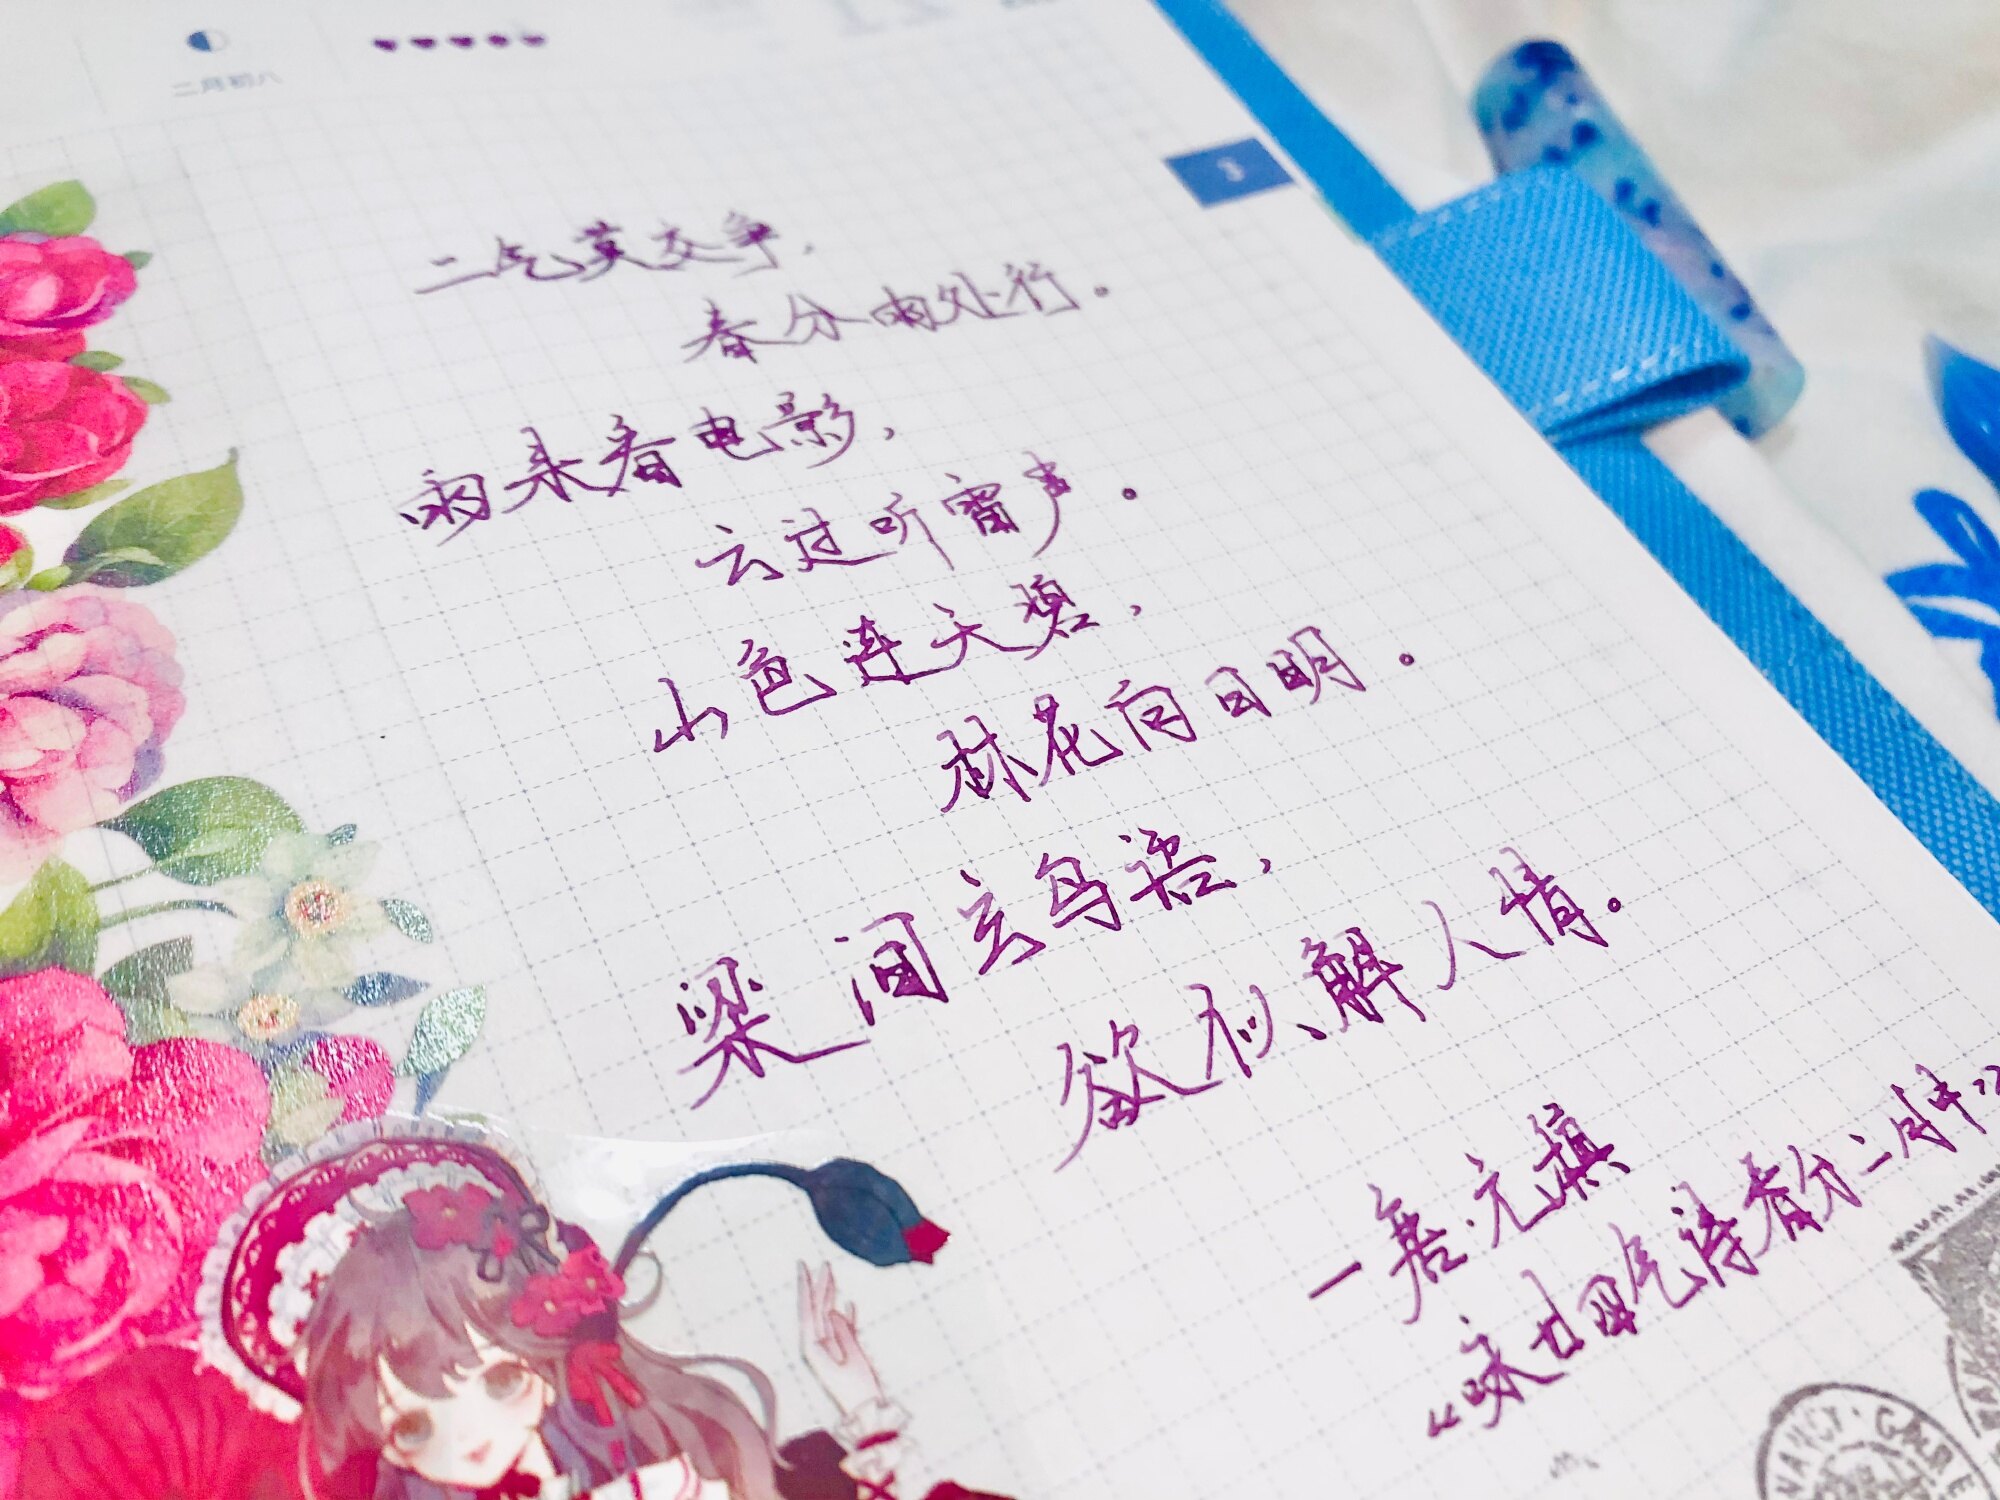 二月初八
3
二气莫交争,
春分雨处行。
雨来看电影,
云过听雷声。
山色连天碧,
林花向日明。
梁间玄鸟语,
欲似解人情。
—唐·元稹
“咏廿四气诗春分二月中”
NANCY·GARE